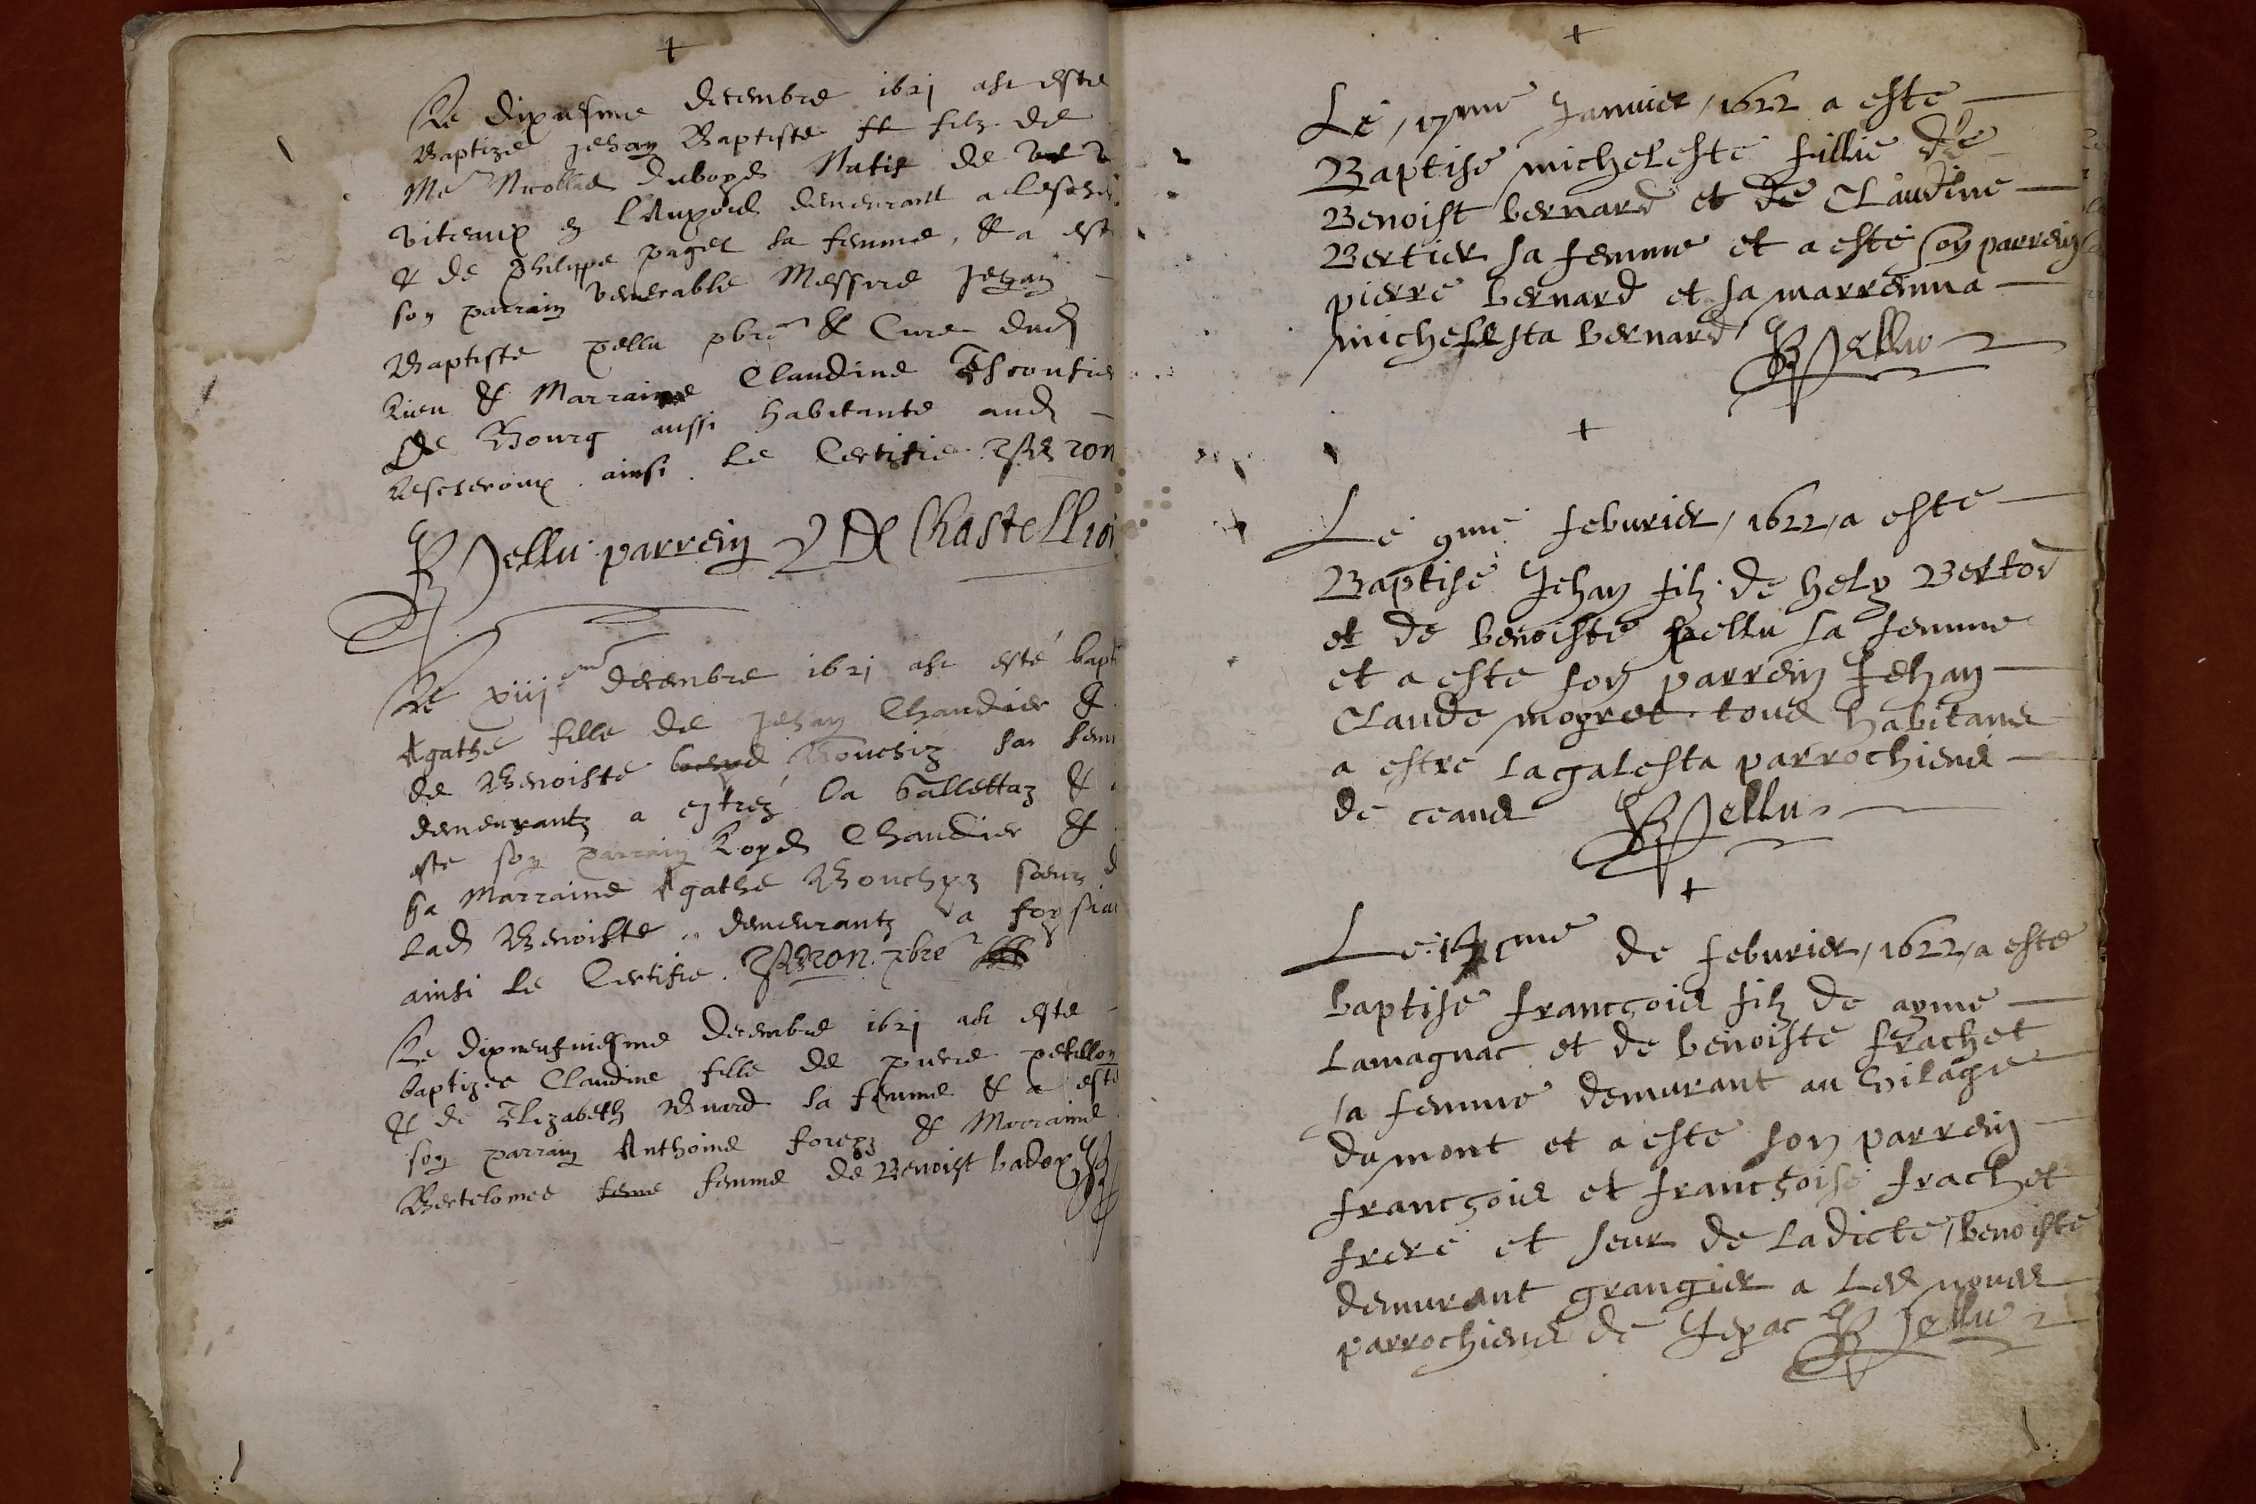 Le dixiesme decembre 1621 ast este
Baptize Jehan Baptiste filz de
Me Nicollas duboys Natif de
viteaux demeurant a
& de philippe paget sa femme, & a est
son parrain venerable Messire Jehan
Baptiste pellu pbre & Cure dud
lieu & Marraine Claudine
De Bourg aussi habitante aud
Lescheroux . ainsi . le Certifie
Pellu parrein De Chastellion
Le xiij me decembre 1621 ast esté bapt
Agathe fille de Jehan Chandier &
de Benoiste sa fem
demeurantz a la &
este son parrain Loys Chandier &
sa Marraine Agathe Bouchyz soeur d
Lad Benoiste . demeurantz a
ainsi le Certifie . pbre
Le dixneufuiesme decembre 1621 ast este
baptizee Claudine fille de pierre petillon
& de Elizabeth sa femme & a este
son parrain Anthoine & Marraine
Bertelomee feme femme de Benoist
Le , 17me Januier , 1622 a este
Baptisé micheleste fillie de
Benoist bernard et de Claudine
Bertier sa femme et a este son parrein
pierre bernard et sa marreinna
michelesta bernard Pellu
Le 9me feburier , 1622 , a este
Baptise Jehan filz de hely Bertod
et de benoiste pellu sa femme
et a este son parrein Jehan
Claude mogret tous habitans
a estre lagalesta parrochiens
de ceans Pellu
Le me de feburier , 1622 , a este
baptise francçois filz de ayme
Lamagnac et de benoiste frachet
sa femme demurant au vilage
du mont et a este son parrein
francçois et francçoise frachet
frere et seur de ladicte , benoiste
demurant grangier a Les noues
parrochiens de Jeyac Pellu